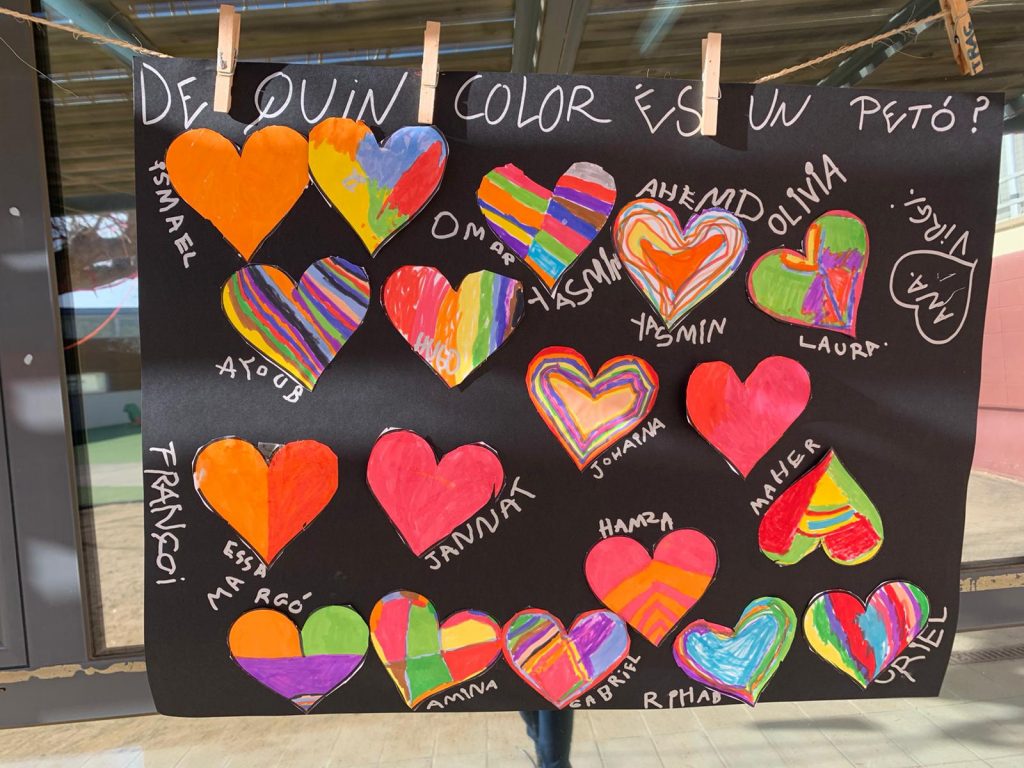 DE QUIN COLOR ÉS UN PETÓ?
ISMAEL
OMAR
YASMIN
AHEMD
OLIVIA
VIRGI.
MNA.
YASMIN
LAURA.
AYOUB
HUGO
JOHAINA
MAHER
FRANÇOI
ESSA
JANNAT
HAMZA
MARGÓ
AMINA
GABRIEL
RPHAB
URIEL